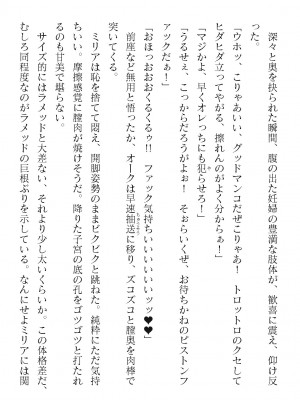 深々と奥を抉られた瞬間、腹の出た妊婦の豊満な肢体が、歓喜に震え、仰け反
った。
「ウホッ、こりゃあいい、グッドマンコだぜこりゃあ！　トロットロのクセして
ヒダヒダ立ってやがる、擦れんのがよく分からぁー！」
「マジかよ、早よオレっちにも犯らせろ！」
「うるせぇ、こっからだろうがよぉ！　そぉらいくぜ、お待ちかねのピストンフ
ァックだぁ！」
「おほっおおおくるくるぅ!!　ファック気持ちぃいいいいいッッ♥♥♥」
　前座など無用と悟ったか、オークは早速抽送に移り、ズコズコと膣奥を肉棒で
突いてくる。
　ミリアは恥を捨てて悶え、開脚姿勢のままビクビクと跳ねた。純粋にただ気持
ちいい。摩擦感覚に膣肉が焼けそうだ、降りた子宮の底の孔をゴツゴツと打たれ
るのも甘美で堪らない。
　サイズ的にはラメッドと大差ない、それより少し太いくらいか。この体格差だ、
むしろ同程度なのがラメッドの巨根ぶりを示している。なんにせよミリアには関